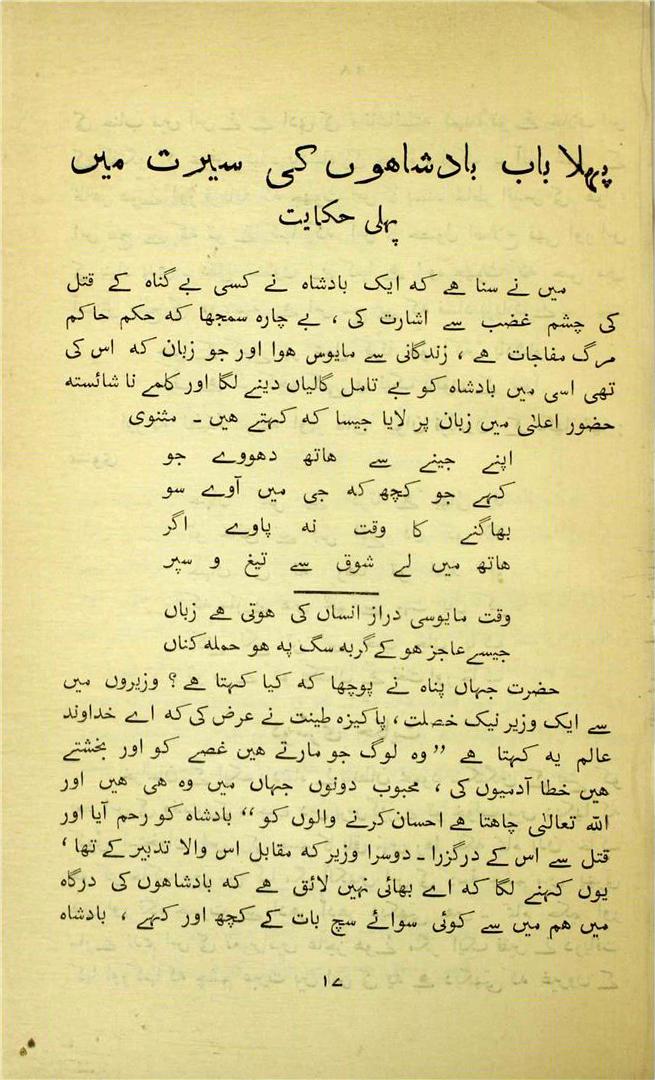 پہلا باب بادشاھوں کی سیرت میں
پہلی حکایت
میں نے سنا ھے کہ ایک بادشاہ نے کسی بے گناہ کے قتل
کی چشم غضب سے اشارت کی ، بے چارہ سمجھا کہ حکم حاکم
مرگ مفاجات ھے ، زندگانی سے مایوس ھوا اور جو زبان کہ اس کی
تھی اسی میں بادشاہ کو بے تامل گالیاں دینے لگا اور کلمے نا شائستہ
حضور اعلیٰ میں زبان پر لایا جیسا کہ کہتے ھیں ۔ مثنوی
اپنے جینے سے ھاتھ دھووے جو
کہے جو کچھ کہ جی میں آوے سو
بھاگنے کا وقت نہ پاوے اگر
ھاتھ میں لے شوق سے تیغ و سپر
وقت مایوسی دراز انساں کی ھوتی ھے زباں
جیسے عاجز ھو کے گربہ سگ پہ ھو حملہ کناں
حضرت جہاں پناہ نے پوچھا کہ کیا کہتا ھے ؟ وزیروں میں
سے ایک وزیر نیک خصلت ، پاکیزہ طینت نے عرض کی کہ اے خداوند
عالم یہ کہتا ھے ”وہ لوگ جو مارتے ھیں غصے کو اور بخشتے
ھیں خطا آدمیوں کی ، محبوب دونوں جہاں میں وہ ھی ھیں اور
اللہ تعالیٰ چاھتا ھے احسان کرنے والوں کو“ بادشاہ کو رحم آیا اور
قتل سے اس کے درگزرا ۔ دوسرا وزیر کہ مقابل اس والا تدبیر کے تھا ،
یوں کہنے لگا کہ اے بھائی نہیں لائق ھے کہ بادشاھوں کی درگاہ
میں ھم میں سے کوئی سوائے سچ بات کے کچھ اور کہے ، بادشاہ
۱۷